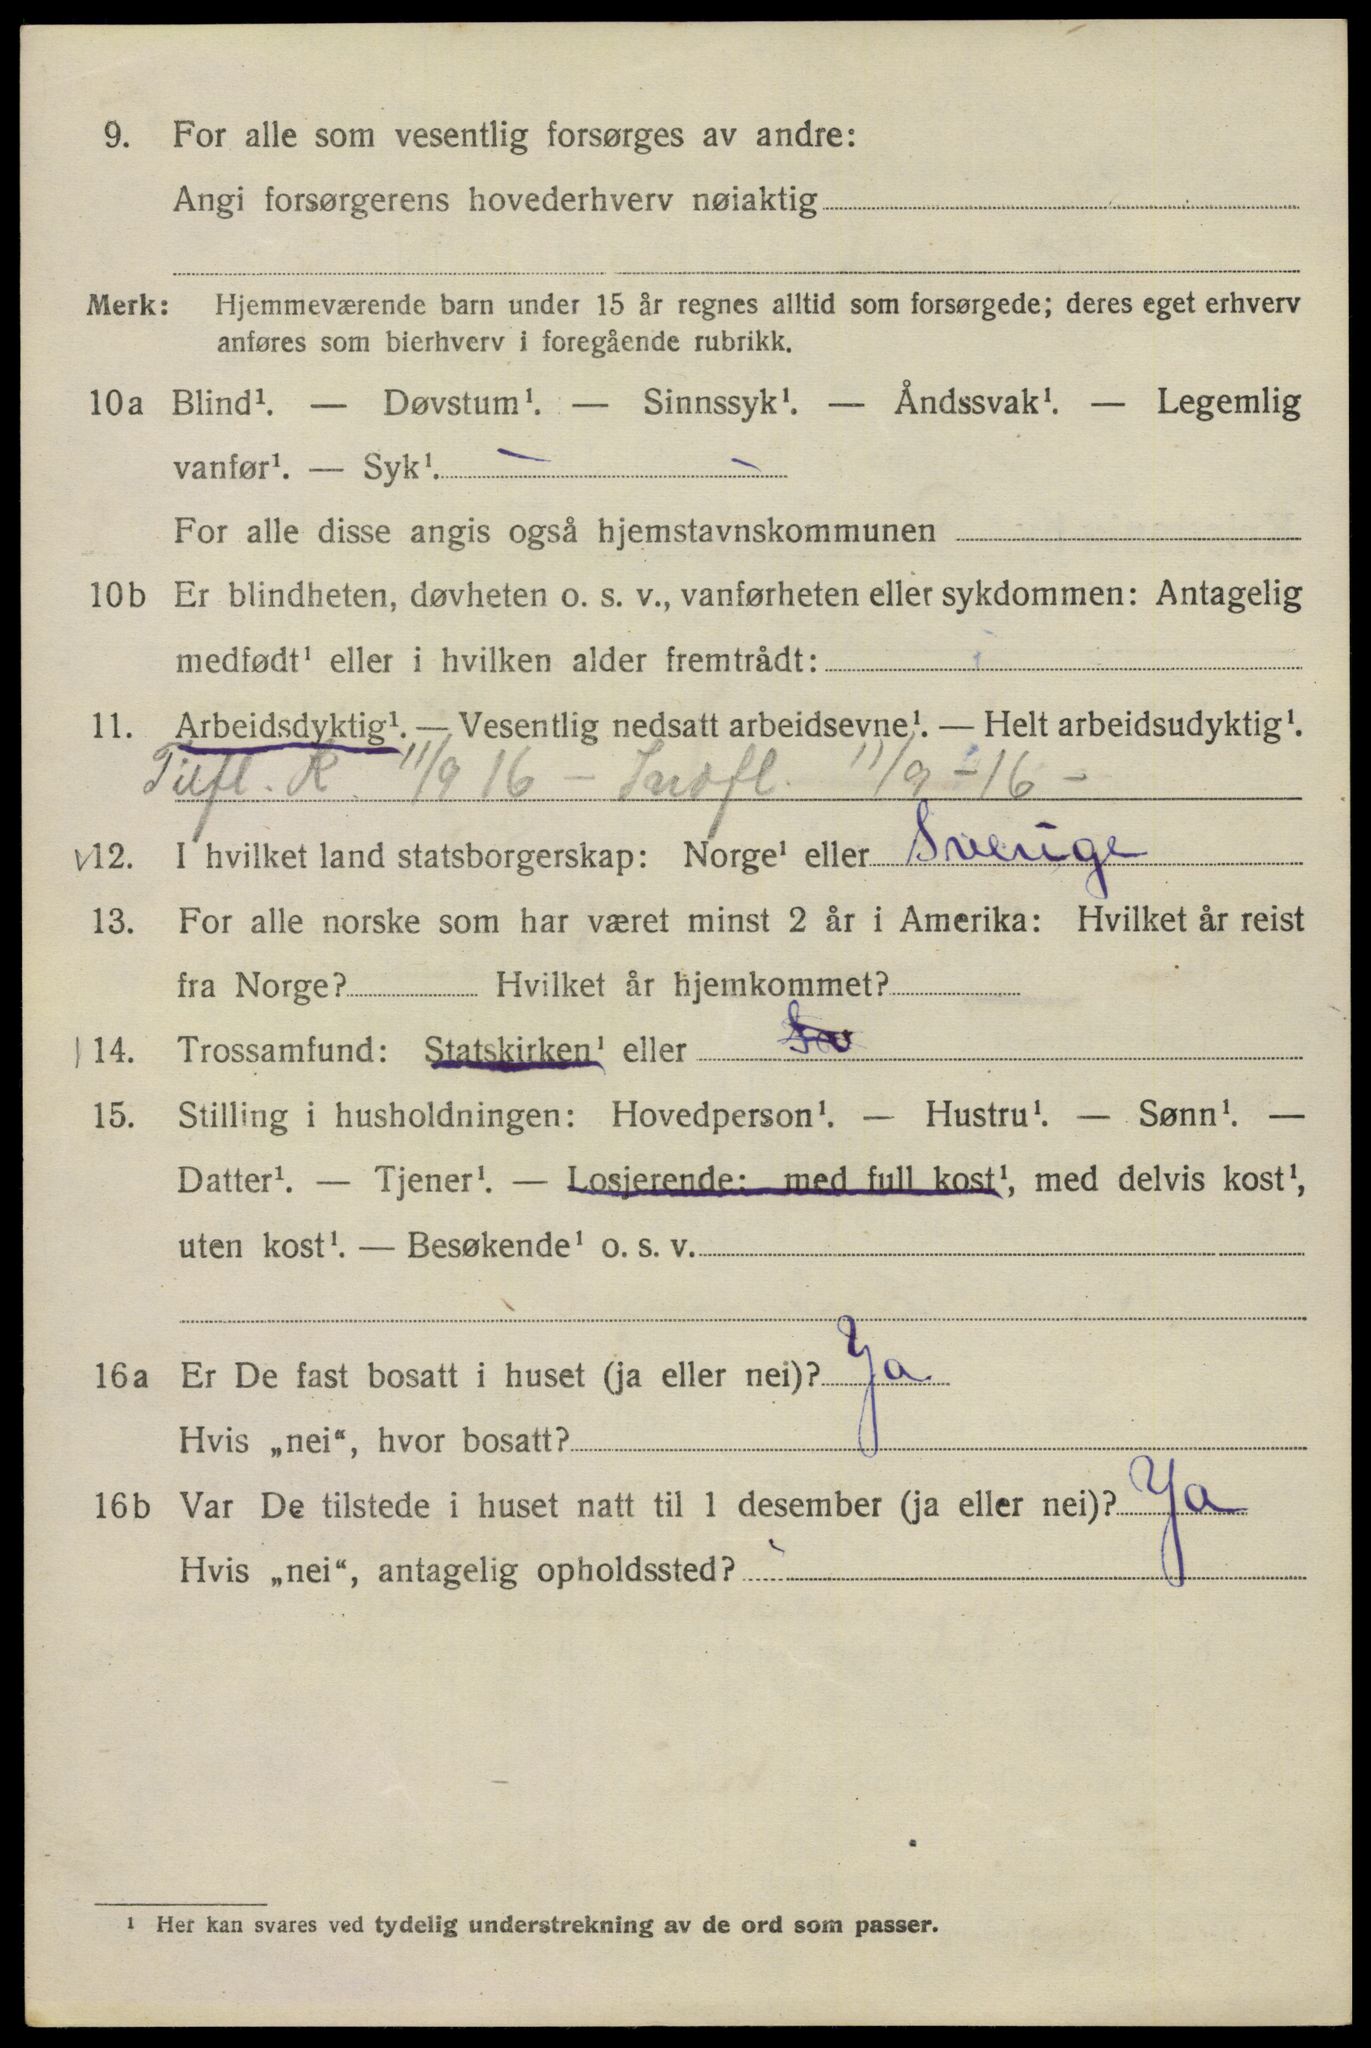 9. For alle som vesentlig forsørges av andre:
Angi forsørgerens hovederhverv nøiaktig
Merk: Hjemmeværende barn under 15 år regnes alltid som forsørgede; deres eget erhverv
anføres som bierhverv i foregående rubrikk.
10a Blind¹. — Døvstum¹. — Sinnssyk¹. — Åndssvak¹. — Legemlig
vanfør¹. — Syk¹.
For alle disse angis også hjemstavnskommunen
10b Er blindheten, døvheten o. s. v., vanførheten eller sykdommen: Antagelig
medfødt¹ eller i hvilken alder fremtrådt:
11. Arbeidsdyktig¹. — Vesentlig nedsatt arbeidsevne¹. — Helt arbeidsudyktig¹.
Tilfl. K. 11/9 16 - Indfl. 11/9 - 16 -
v12. I hvilket land statsborgerskap: Norge¹ eller Sverige
13. For alle norske som har været minst 2 år i Amerika: Hvilket år reist
fra Norge? Hvilket år hjemkommet?
14. Trossamfund: Statskirken¹ eller
15. Stilling i husholdningen: Hovedperson¹. — Hustru¹. — Sønn¹. —
Datter¹. — Tjener¹. — Losjerende: med full kost¹, med delvis kost¹,
uten kost¹. — Besøkende¹ o. s. v.
16a Er De fast bosatt i huset (ja eller nei)? Ja
Hvis „nei“, hvor bosatt?
16b Var De tilstede i huset natt til 1 desember (ja eller nei)? Ja
Hvis „nei“, antagelig opholdssted?
¹ Her kan svares ved tydelig understrekning av de ord som passer.